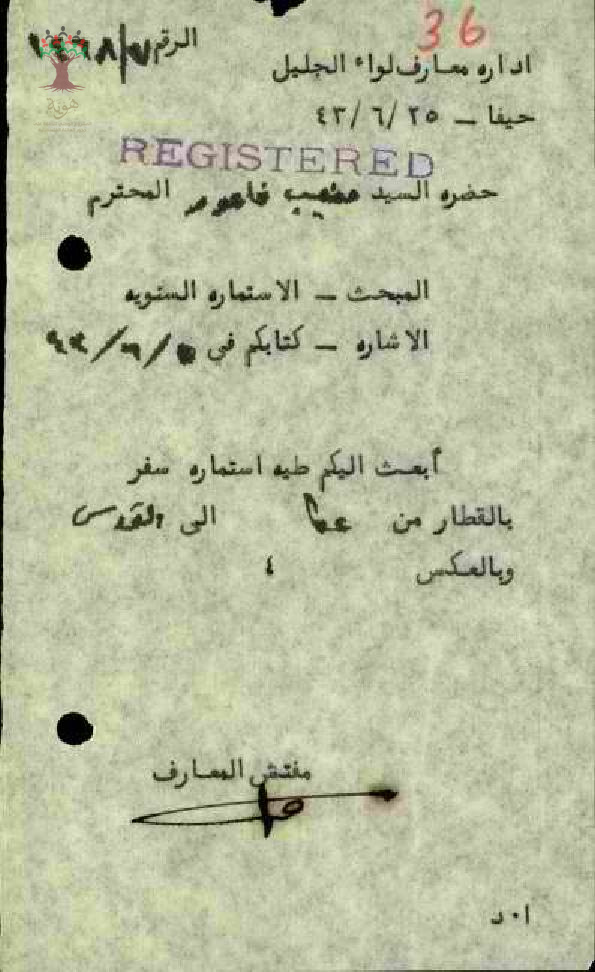 36
الرقم
اداره معارف لواء الجليل
هوية
حيفا - ٢٥/٦/٤٣
REGISTERED
حضره السيد المحترم
المبحث - الاستماره السنويه
الاشاره - كتابكم في
أبعث اليكم طيه استماره سفر
بالقطار من عكا الى القدس
وبالعكس ٤
مفتش المعارف
ا٠د